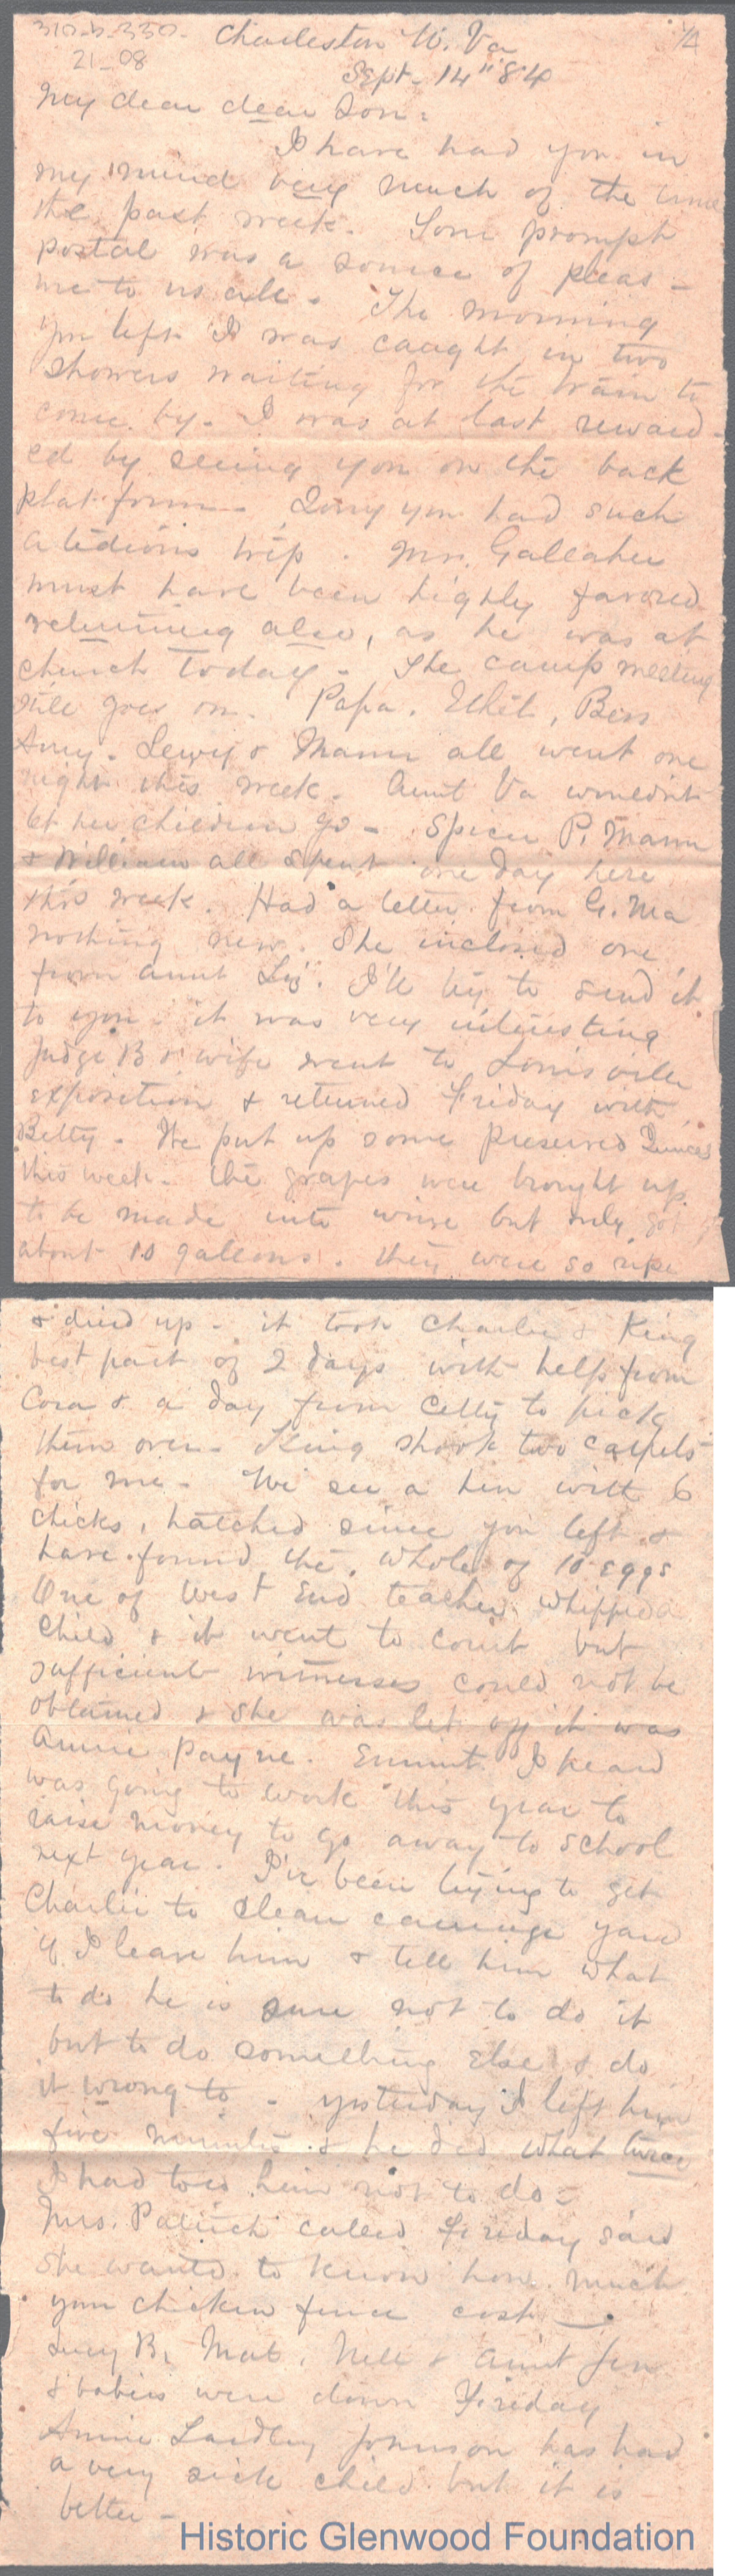 310-b-330-
21-08
1/4
Charleston W. Va
Sept- 14" 84
My dear dear Son:
I have had you in
my mind very much of the time
the past week. Your prompt
postal was a source of pleas-
ure to us all. The morning
you left I was caught in two
showers waiting for the train to
come by. I was at last reward-
ed by seeing you on the back
plat-form - Sorry you had such
a tedious trip. Mr. Gallaher
must have been highly favored
returning also, as he was at
church today - The camp meeting
still goes on. Papa, Ethel, Bess
Amy, Lewy & Mann all went one
night this week. Aunt Va wouldn't
let her children go - Spicer P. Mann
& William all spent one day here
this week. Had a letter from G. Ma
nothing new. She inclosed one
from aunt Liz. I'll try to send it
to you - it was very interesting
Judge B & wife went to Louisville
exposition & returned Friday with
Betty - We put up some preserved Quinces
this week. the grapes were brought up
to be made into wine but only got
about 10 gallons. they were so ripe
& dried up - it took Charlie & King
best part of 2 days with help from
Cora & a day from Celty to pick
them over - King shook two carpets
for me - We see a hen with 6
chicks, hatched since you left &
have found the whole of 10 eggs
One of West End teacher whipped a
child & it went to court but
sufficient witnesses could not be
obtained & she was let off it was
Annie Payne. Emmit I heard
was going to work this year to
raise money to go away to school
next year. I've been trying to get
Charlie to clean carriage yard
if I leave him & tell him what
to do he is sure not to do it
but to do something else & do
it wrong to - yesterday I left him
five minutes & he did what twice
I had told him not to do -
Mrs. Patrick called Friday said
she wanted to know how much
your chicken fence cost -
Lucy B, Mat, Nell & Aunt Jen
& babies were down Friday
Annie Laidley Johnson has had
a very sick child but it is
better -
Historic Glenwood Foundation